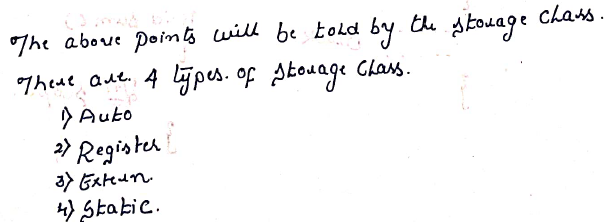 The above points will be told by the storage class.
There are 4 types of storage class.
1) Auto
2) Register
3) Extern.
4) Static.